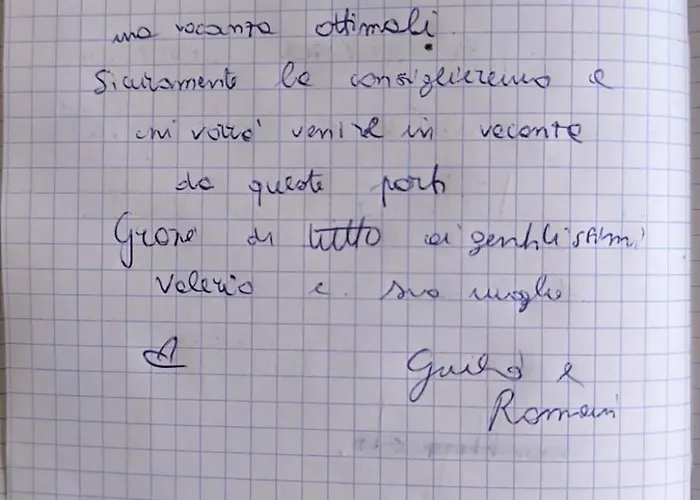 una vacanza ottimali.
Sicuramente la consiglieremo a
chi vorra' venire in vacanza
da queste parti
Grazie di tutto ai gentilissimi
Valerio e sua moglie
Guido e